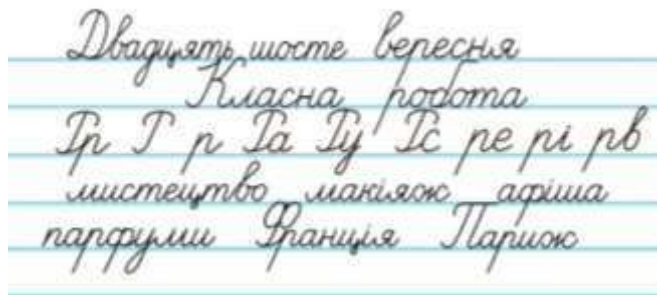 Двадцять шосте вересня
Класна робота
Рр Р р Ра Ру Рс ре рі рв
мистецтво макіяж афіша
парфуми Франція Париж